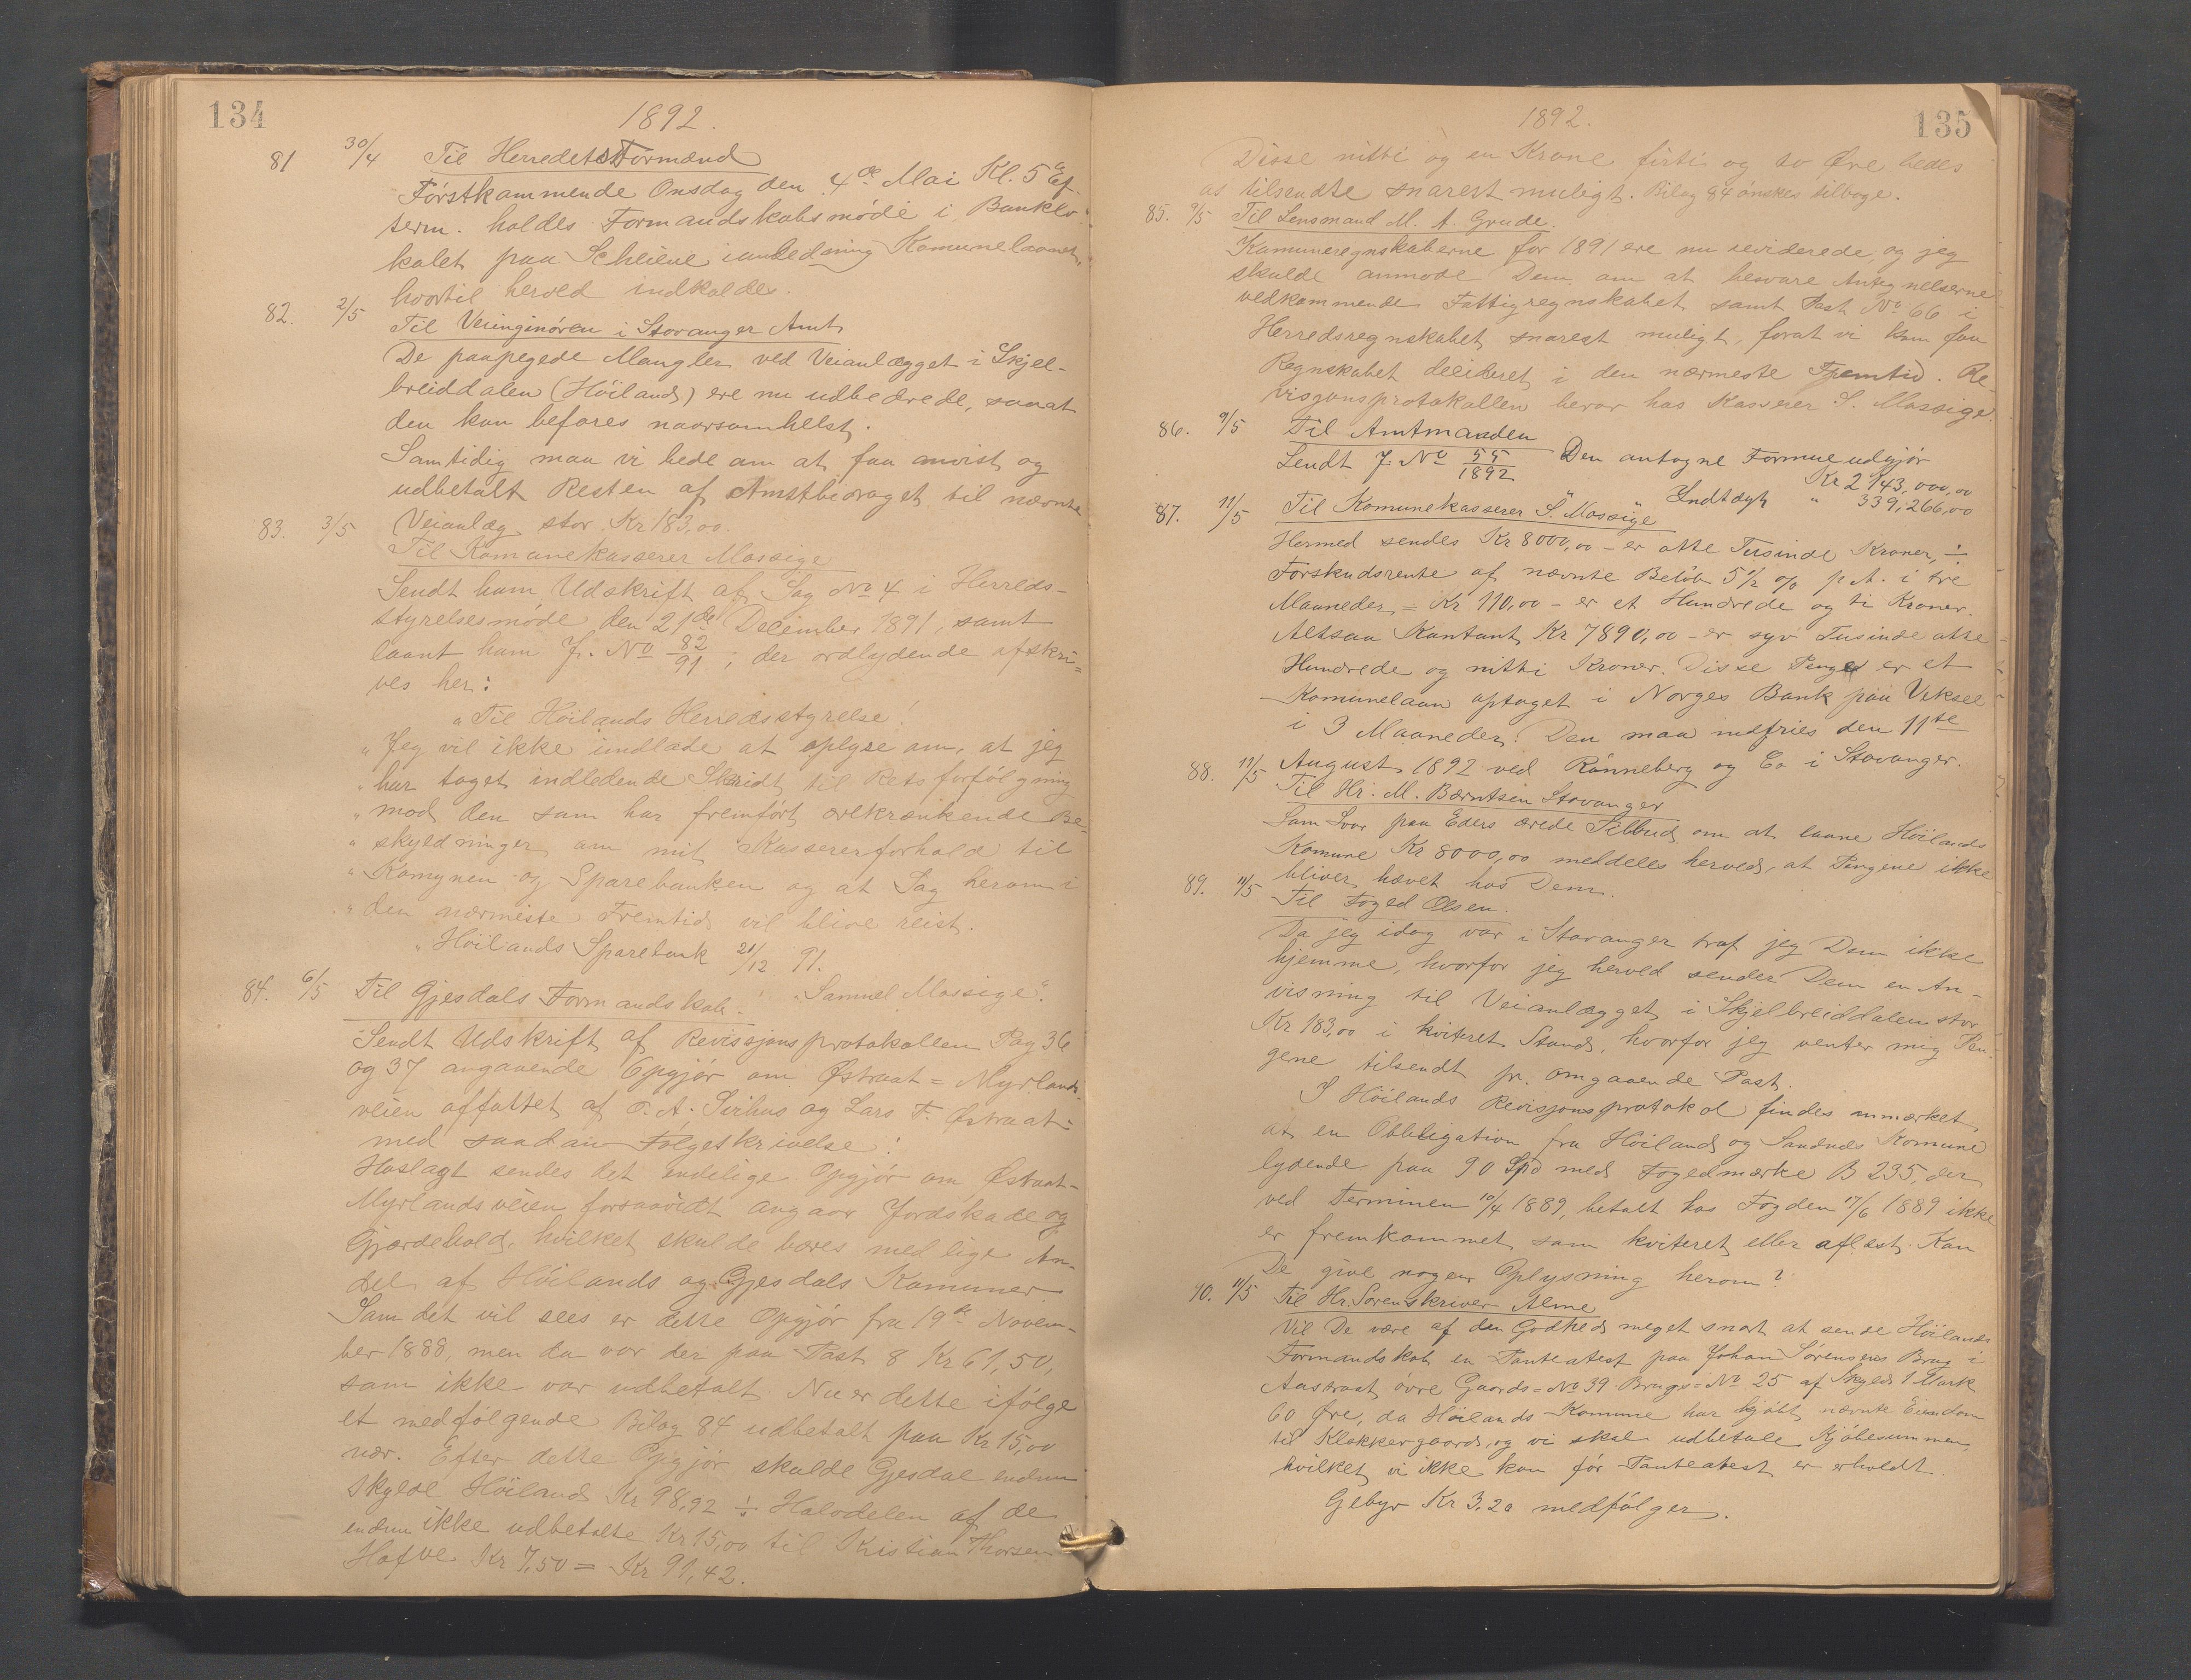 134
1892.
81 30/4 Til Herredets Formænd
Førstkommende Onsdag den 4de Mai Kl. 5 Ef-
term. holdes Formandskabsmøde i Banklo-
kalet paa Scheiene i anledning Komunelaanet,
hvortil herved indkaldes.
82. 2/5 Til Veiinginøren i Stavanger Amt
De paapegede Mangler ved Veianlægget i Skjel-
breiddalen (Høiland) ere nu udbedrede, saaat
den kan befares naarsomhelst.
Samtidig maa vi bede om at faa anvist og
udbetalt Resten af Amtsbidraget til nævnte
Veianlæg stor Kr 183,00.
83. 3/5 Til Komunekasserer Mossige
Sendt ham Udskrift af Sag No 4 i Herreds-
styrelsesmøde den 21de December 1891, samt
laant ham J. No 82/91; der ordlydende afskri-
ves her:
"Til Høilands Herredsstyrelse!
"Jeg vil ikke undlade at oplyse om, at jeg
"har taget indledende Skridt til Retsforfølgning
"mod den som har fremført ærekrænkende Be-
"skyldninger om mit Kassererforhold til
"Komunen og Sparebanken og at Sag herom i
"den nærmeste Fremtid vil blive reist.
"Høilands Sparebank 21/12 91.
"Samuel Mossige".
84. 6/5 Til Gjesdals Formandskab.
Sendt Udskrift af Revissjonsprotokollen Pag 36
og 37 angaaende Opgjør om Østraat = Myrlands-
veien affattet af O. A. Sirhus og Lars T. Østraat
med saadan Følgeskrivelse:
Hoslagt sendes det endelige Opgjør om Østraat-
Myrlandsveien forsaavidt angaar Jordskade og
Gjærdehold, hvilket skulde bæres med lige An-
del af Høilands og Gjesdals Komuner.
Som det vil sees er dette Opgjør fra 19de Novem-
ber 1888, men da var der paa Post 8 Kr 61,50,
som ikke var udbetalt. Nu er dette ifølge
et medfølgende Bilag 84 udbetalt paa Kr 15,00
nær. Efter dette Opgjør skulde Gjesdal endnu
skylde Høiland Kr 98,92 ÷ Halvdelen af de
endnu ikke udbetalte Kr 15,00 til Kristian Thorsen
Hafve Kr 7,50 = Kr 91,42.
1892.
135
Disse nitti og en Krone firti og to Øre bedes
os tilsendte snarest muligt. Bilag 84 ønskes tilbage.
85. 9/5 Til Lensmand M. A. Grude.
Komuneregnskaberne for 1891 ere nu reviderede, og jeg
skulde anmode Dem om at besvare Antegnelserne
vedkommende Fattigregnskabet samt Post No 66 i
Herredsregnskabet snarest muligt, forat vi kan faa
Regnskabet desideret i den nærmeste Fremtid. Re-
visjonsprotokollen beror hos Kasserer S. Mossige.
86. 9/5 Til Amtmanden
Sendt J. No 55/1892 Den antagne Formue udgjør
Kr 2 143,000,00
Indtægt " 339,266,00
87. 11/5 Til Komunekasserer S. Mossige
Hermed sendes Kr 8000,00 – er otte Tusinde Kroner, ÷
Forskudsrente af nævnte Beløb 5 1/2 % p. A. i tre
Maaneder = Kr 110,00 – er et Hundrede og ti Kroner.
Altsaa Kontant Kr 7890,00 – er syv Tusinde otte
Hundrede og nitti Kroner. Disse Penge er et
Komunelaan optaget i Norges Bank paa Veksel
i 3 Maaneder. Den maa indfries den 11te
August 1892 ved Rønneberg og Co i Stavanger.
88. 11/5 Til Hr. M. Bærntsen Stavanger
Som Svar paa Eders ærede Tilbud om at laane Høilands
Komune Kr 8000,00 meddeles herved, at Pengene ikke
bliver hævet hos Dem.
89. 11/5 Til Foged Olsen.
Da jeg idag var i Stavanger traf jeg Dem ikke
hjemme, hvorfor jeg herved sender Dem en An-
visning til Veianlægget i Skjelbreiddalen stor
Kr 183,00 i kviteret Stand, hvorfor jeg venter mig Pen-
gene tilsendt pr. omgaaende Post.
I Høilands Revisjonsprotokol findes anmærket,
at en Obbligation fra Høiland og Sandnæs Komune
lydende paa 90 Spd med Fogedmærke B 235, der
ved Terminen 10/4 1889, betalt hos Fogden 17/6 1889 ikke
er fremkommet som kviteret eller aflæst. Kan
De give nogen Oplysning herom?
90. 11/5 Til Hr. Sorenskriver Alme
Vil De være af den Godhed meget snart at sende Høilands
Formandskab en Panteatest paa Johan Sørensens Brug i
Aastraat øvre Gaards-No 39 Brugs-No 25 af Skyld 1 Mark
60 Øre, da Høilands Komune har kjøbt nævnte Eiendom
til Klokkergaard, og vi skal udbetale Kjøbesummen,
hvilket vi ikke kan før Panteatest er erholdt.
Gebyr Kr 3,20 medfølger.